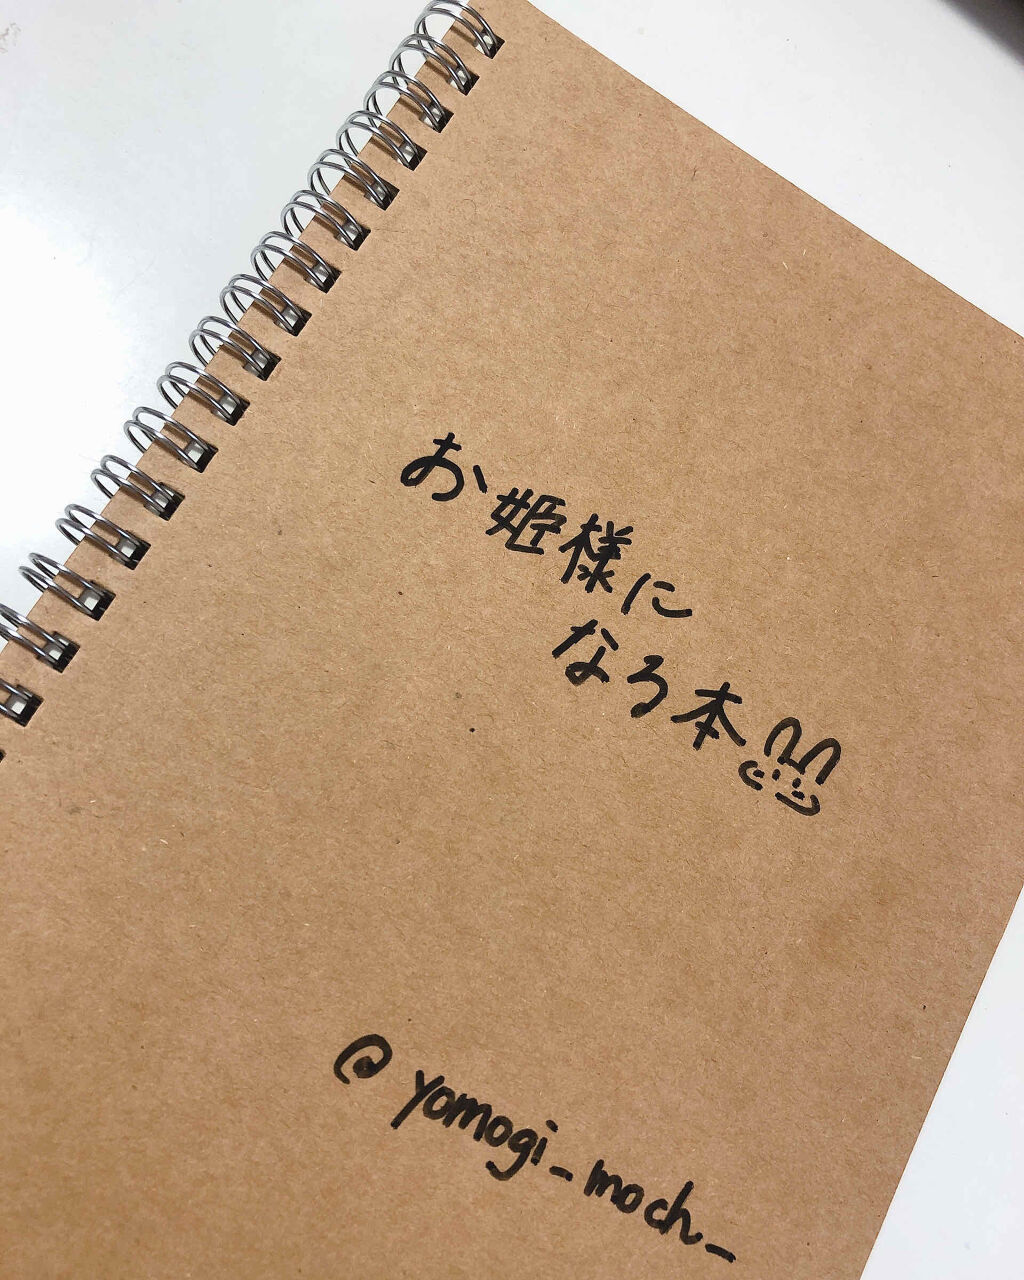 お姫様に
なる本
@yomogi_moch_